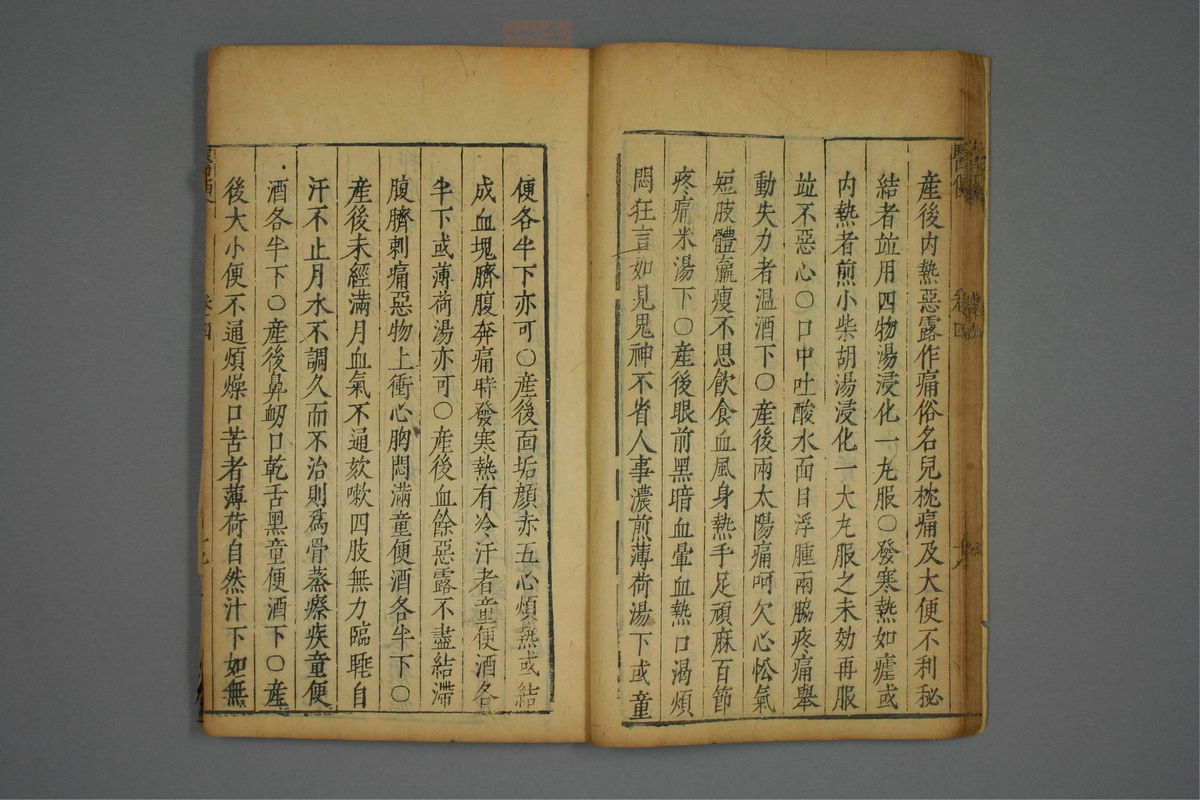 產後内熱惡露作痛俗名兒枕痛及大便不利秘
結者竝用四物湯浸化一丸服〇發寒熱如瘧或
内熱者煎小柴胡湯浸化一大丸服之未効再服
竝不惡心〇口中吐酸水面目浮腫兩脇疼痛舉
動失力者温酒下〇產後兩太陽痛呵欠心忪氣
短肢體羸瘦不思飲食血風身熱手足頑麻百節
疼痛米湯下〇產後眼前黑暗血暈血熱口渴煩
悶狂言如見鬼神不省人事濃煎薄荷湯下或童
便各半下亦可〇產後面垢顔赤五心煩熱或結
成血塊臍腹奔痛時發寒熱有冷汗者童便酒各
半下或薄荷湯亦可〇產後血餘惡露不盡結滯
腹臍刺痛惡物上衝心胸悶滿童便酒各半下〇
產後未經滿月血氣不通欬嗽四肢無力臨睡自
汗不止月水不調久而不治則爲骨蒸瘵疾童便
酒各半下〇產後鼻衂口乾舌黑童便酒下〇產
後大小便不通煩燥口苦者薄荷自然汁下如無